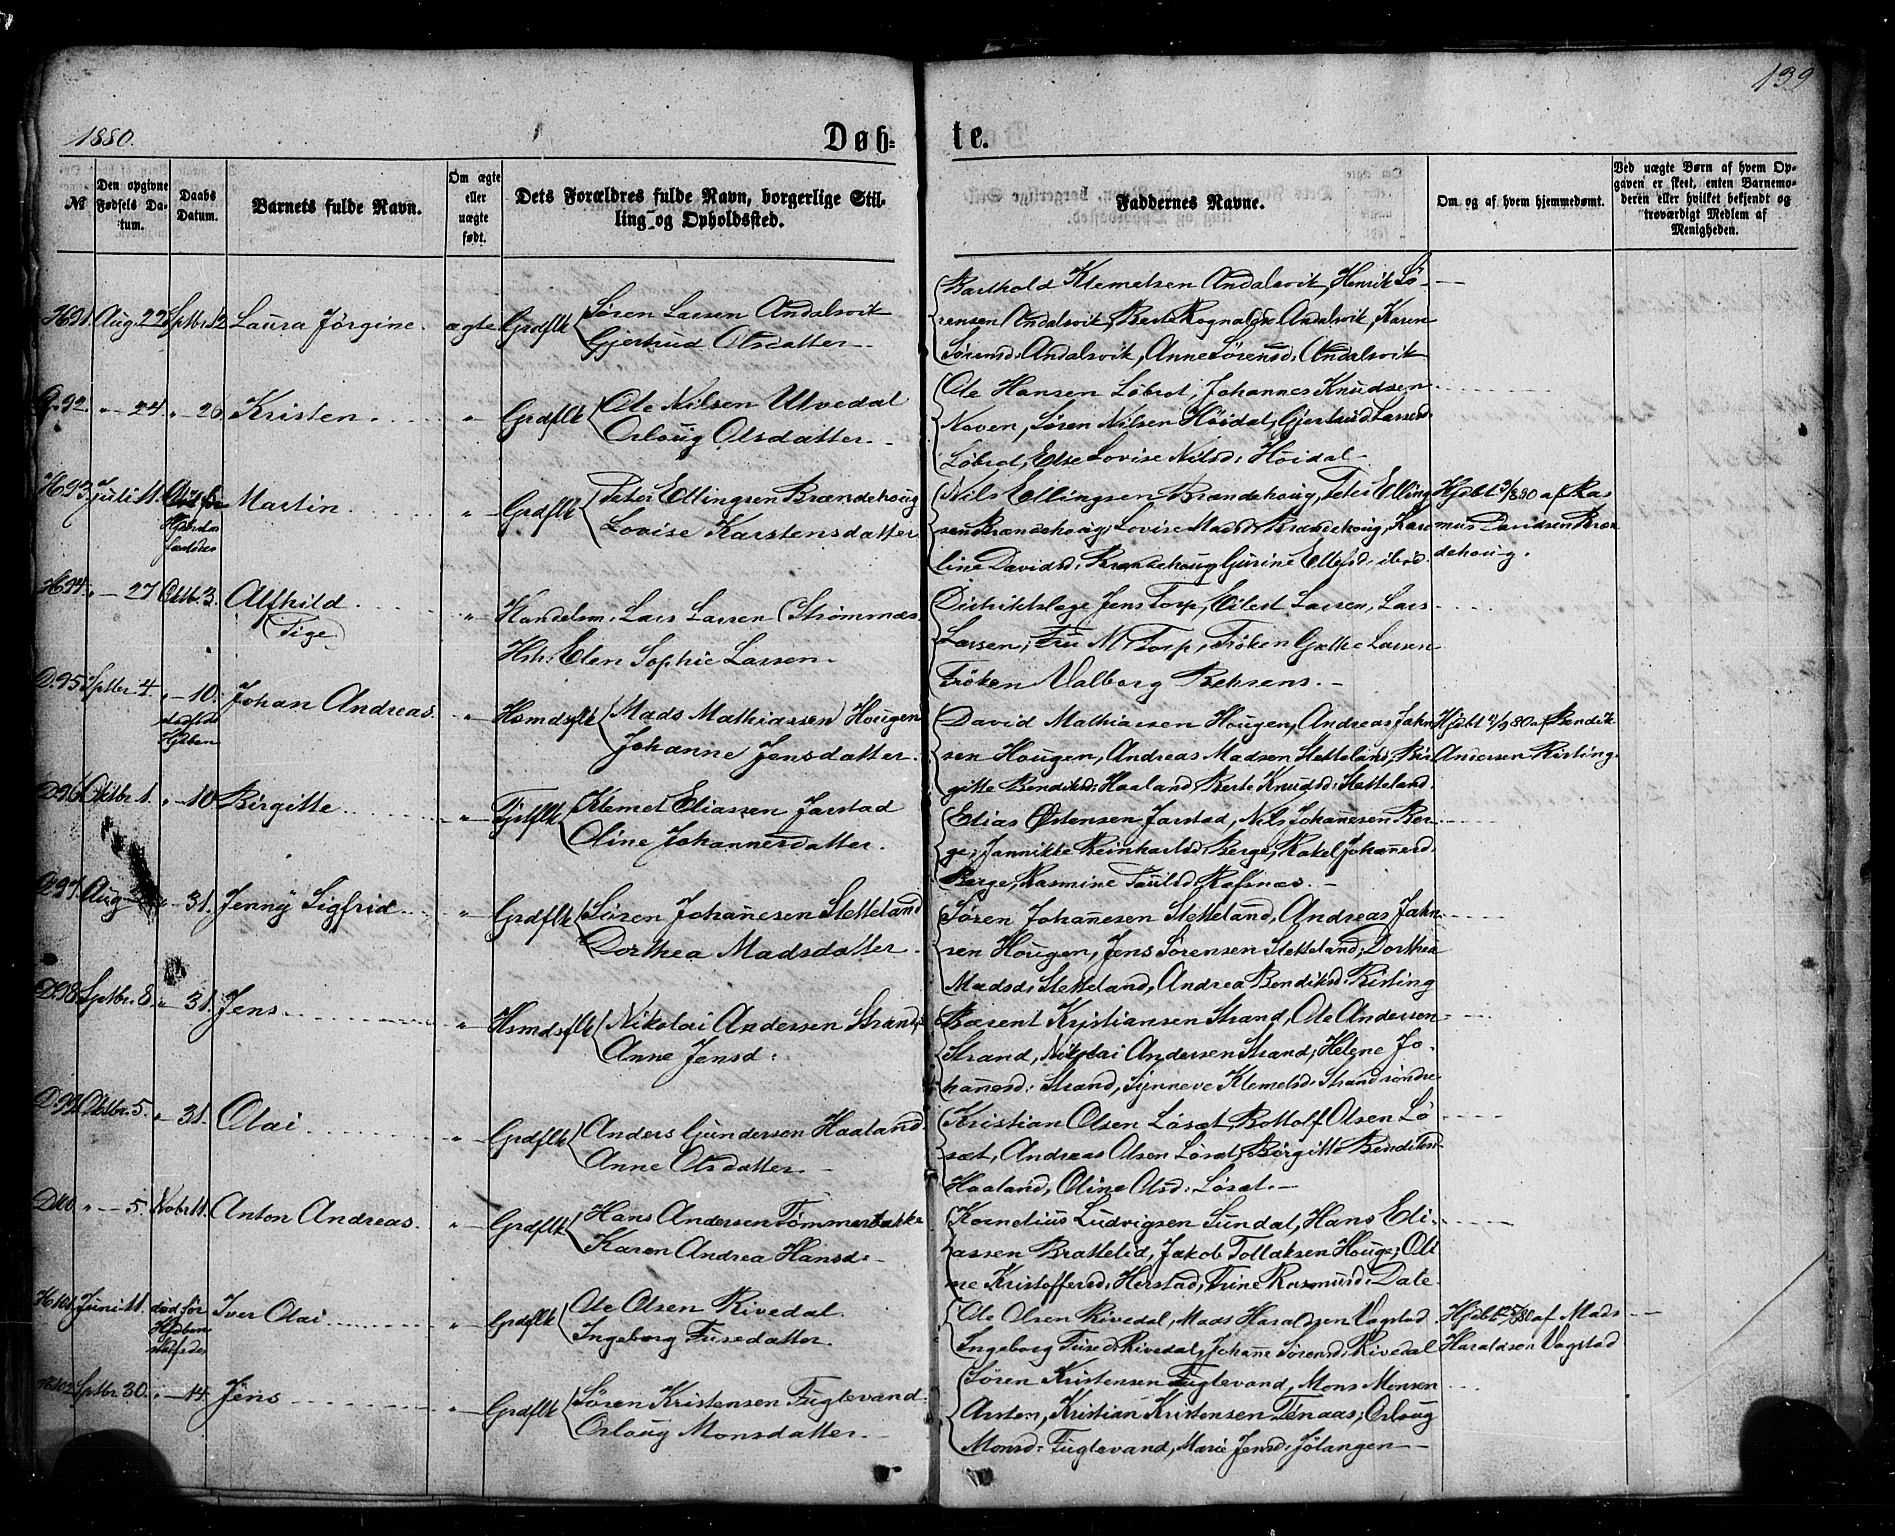 139
1880.
Døb-
te.
№
Den opgivne Fødsels Datum.
Daabs Datum.
Barnets fulde Navn.
Om ægte eller uægte født.
Dets Forældres fulde Navn, borgerlige Stilling og Opholdssted.
Faddernes Navne.
Om og af hvem hjemmedømt.
Ved uægte Børn af hvem Opgaven er skeet, enten Barnemoderen eller hvilket bekjendt og troværdigt Medlem af Menigheden.
H91. Aug 22 Sptbr 12 Laura Jørgine. ægte Grdflk Søren Larsen Andalsvik
Gjertrud Olsdatter.
Barthold Klemetsen Andalsvik, Henrik Sø-
rensen Andalsvik, Berte Rognaldsd. Andalsvik, Karen
Sørensd. Andalsvik, Anne Sørensd. Andalsvik
92. " 24 " 26 Kristen. " Grdflk Ole Nilsen Utvedal
Orloug Olsdatter.
Ole Hansen Løbrot, Johannes Knudsen
Noven, Søren Nilsen Høidal, Gjertrud Larsd.
Løbrot, Else Lovise Nilsd: Høidal
H93 Juli 11. Martin " Grdflk Peter Ellingsen Brændehoug
Lovise Karstensdatter
Nils Ellingsen Brændehoug, Peter Elling
sen Brændehoug, Lovise Madsd: Brændehoug, Karo
line Davidsd: Brændehoug, Gurine Ellefsd: ibid.
Hjdbt af Ras
mus Davidsen Bræn
dehoug.
H94 " 27 Oktb. 3. Alfhild
(Pige)
" Handelsm: Lars Larsen Strømmæs
Hst: Elen Sophie Larsen.
Distriktslæge Jens Torp, Eilert Larsen, Lars
Larsen, Fru M Torp, Frøken Gæthe Larsen
Frøken Valborg Behrens.
D.95 Sptbr 4 " 10. Johan Andreas. " Hsmdsflk Mads Mathiassen Hougen
Johanne Jensdatter.
David Mathiasen Hougen, Andreas Jahn
sen Hougen, Andreas Madsen Stetteland, Bir
gitte Bendiksd: Haaland, Berte Knudsd: Stetteland.
Hjdbt af Bendik
Andersen Risting.
D.96 Oktbr 1. " 10 Birgitte " Klemet Eliassen Jarstad
Oline Johannesdatter.
Elias Østensen Jarstad, Nils Johanesen Ber-
ge, Jannikke Reinhartsd. Berge, Rakel Johanesd.
Berge, Rasmine Paulsd. Rafsnæs.
97 Aug " 31. Jenny Sigfrid " Grdflk Søren Johanesen Stetteland
Dorthea Madsdatter.
Søren Johanesen Stetteland, Andreas Jahn
sen Hougen, Jens Sørensen Stetteland, Dorthea
Madsd: Stetteland, Andrea Bendiksd: Risting
D.98 Sptbr. 8. " 31. Jens " Hsmdsflk Nikolai Andersen Strand
Anne Jensd:
Bærent Kristiansen Strand, Ole Andersen
Strand, Nikolai Andersen Strand, Helene Jo-
hanesd: Strand, Synneve Klemetsd: Strand søndre
D.99 Oktbr. 5. " 31. Olai " Grdflk Anders Gundersen Haaland.
Anne Olsdatter.
Kristian Olsen Løset, Bottolf Olsen Lø
set, Andreas Olsen Løset, Birgitte Bendiksd
Haaland, Oline Olsd: Løset.
D100 " 5. Nobr 11. Anton Andreas. " Grdflk Hans Andersen Tømmerbakke
Karen Andrea Hansd:
Kornelius Ludvigsen Sundal, Hans Eli-
assen Brattelid, Jakob Tollaksen Houge, Oli
ne Kristoffersd: Herstad, Trine Rasmusd: Dale
H101 Juni 11. død før
Hjdben
stadfæstes
Iver Olai " Grdflk Ole Olsen Rivedal
Ingeborg Fusedatter.
Ole Olsen Rivedal, Mads Haraldsen Vagstad
Ingeborg Fused. Rivedal, Johane Sørensd: Rivedal
Hjdbt af Mads
Haraldsen Vagstad
H102 Sptbr. 30. " 14. Jens " Grdflk Søren Kristensen Fuglevand
Orloug Monsdatter.
Søren Kristensen Fuglevand, Mons Monsen
Arsten, Kristian Kristensen Tenaas, Orloug
Monsd: Fuglevand, Marie Jensd: Jølangen